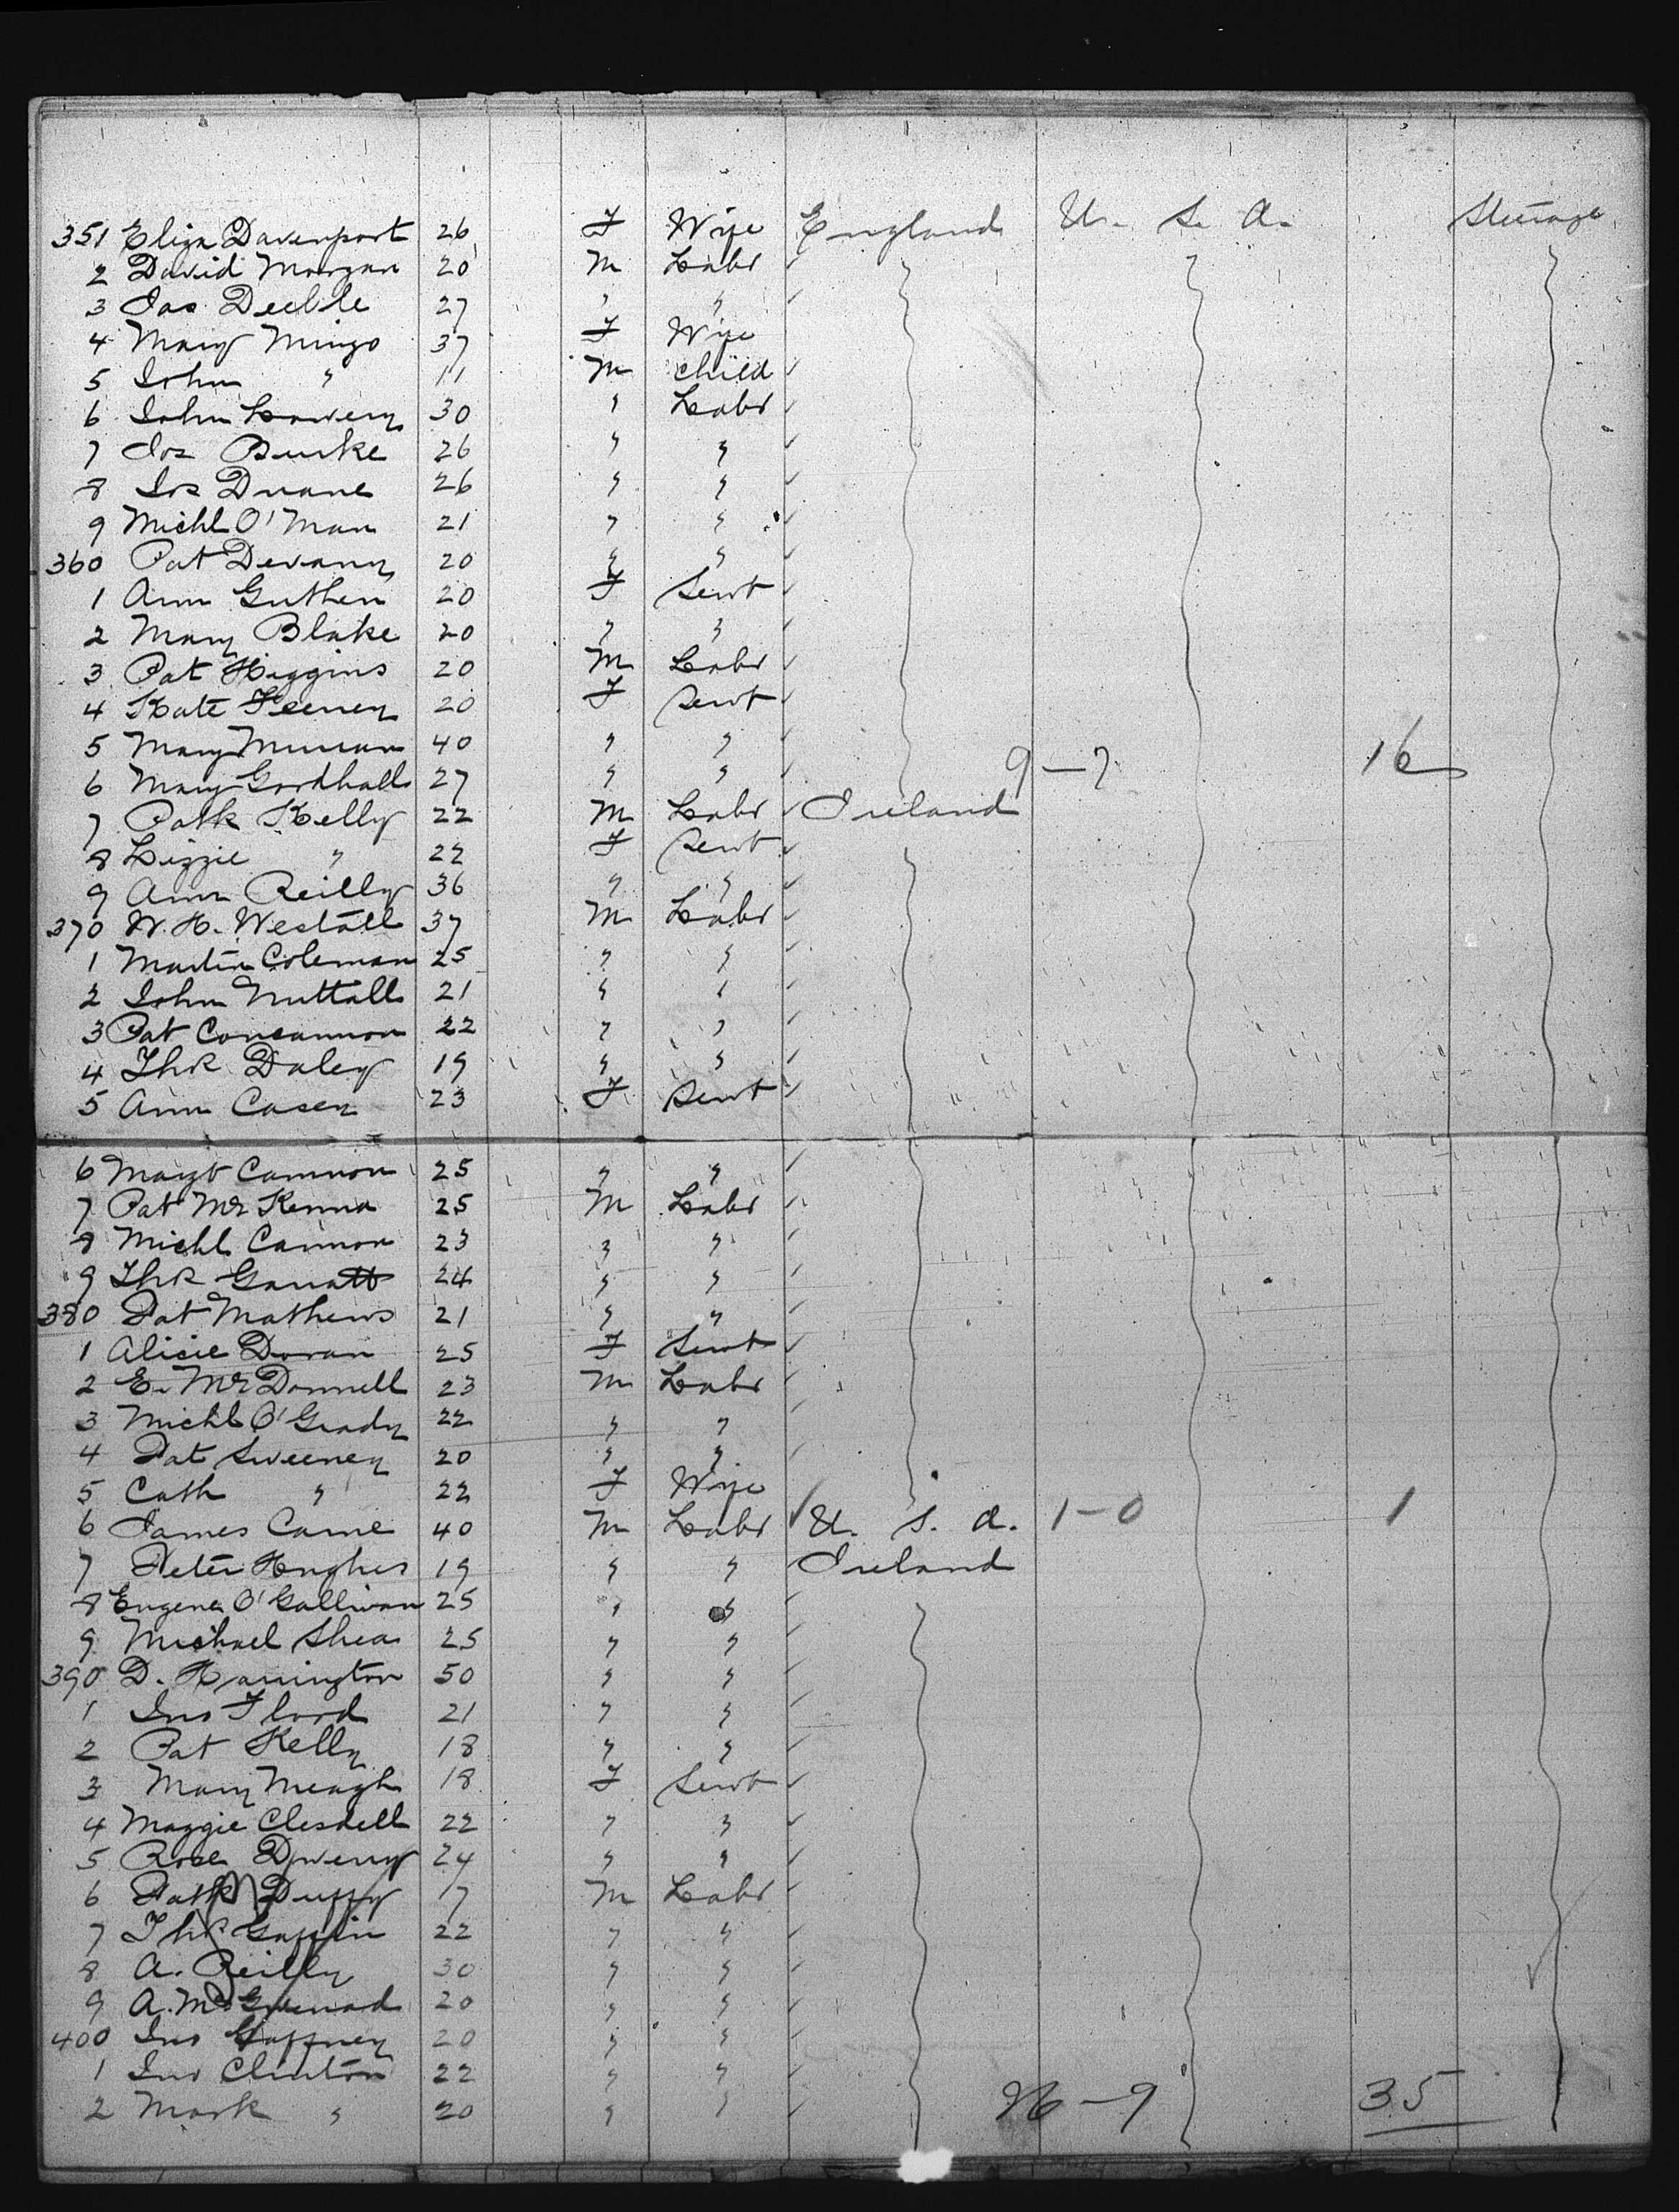 351 Eliza Davenport 26 F Wife England U. S. A. Steerage
2 David Morgan 20 M Labr
3 Jas Deeble 27 " "
4 Mary Mingo 37 F Wife
5 John " 11 M child
6 John Lowery 30 " Labr
7 Jos Burke 26 " "
8 Jos Duane 26 " "
9 Michl O'Man 21 " "
360 Pat Devany 20 " "
1 Ann Guthen 20 F Servt
2 Mary Blake 20 " "
3 Pat Higgins 20 M Labr
4 Kate Feeney 20 F Servt
5 Mary 40 " "
6 Mary Goodhall 27 " " 9-7 16
7 Patk Kelly 22 M Labr Ireland
8 Lizzie " 22 F Servt
9 Ann Reilly 36 " "
370 W. H. Westall 37 M Labr
1 Martin Coleman 25 " "
2 John Nuttall 21 " "
3 Pat Concannon 22 " "
4 Thos Daley 19 " "
5 Ann Casey 23 F Servt
6 Margt Cannon 25 " "
7 Pat McKenna 25 M Labr
8 Michl Cannon 23 " "
9 Thos Garratt 24 " "
380 Pat Mathews 21 " "
1 Alicie Doran 25 F Servt
2 E. McDonnell 23 M Labr
3 Michl O'Grady 22 " "
4 Pat Sweeney 20 " "
5 Cath " 22 F Wife
6 James Carne 40 M Labr U. S. A. 1-0 1
7 Peter Hughes 19 " " Ireland
8 Eugene O'Sullivan 25 " "
9 Michael Shea 25 " "
390 D. Harrington 50 " "
1 Jno Flood 21 " "
2 Pat Kelly 18 " "
3 Mary Meagh 18 F Servt
4 Maggie Clesdell 22 " "
5 Rose 24 " "
6 Patk Duffy 17 M Labr
7 Thos 22 " "
8 A. Reilly 30 " "
9 A. 20 " "
400 Jno Gaffney 20 " "
1 Jno Clinton 22 " "
2 Mark " 20 " " 26-9 35